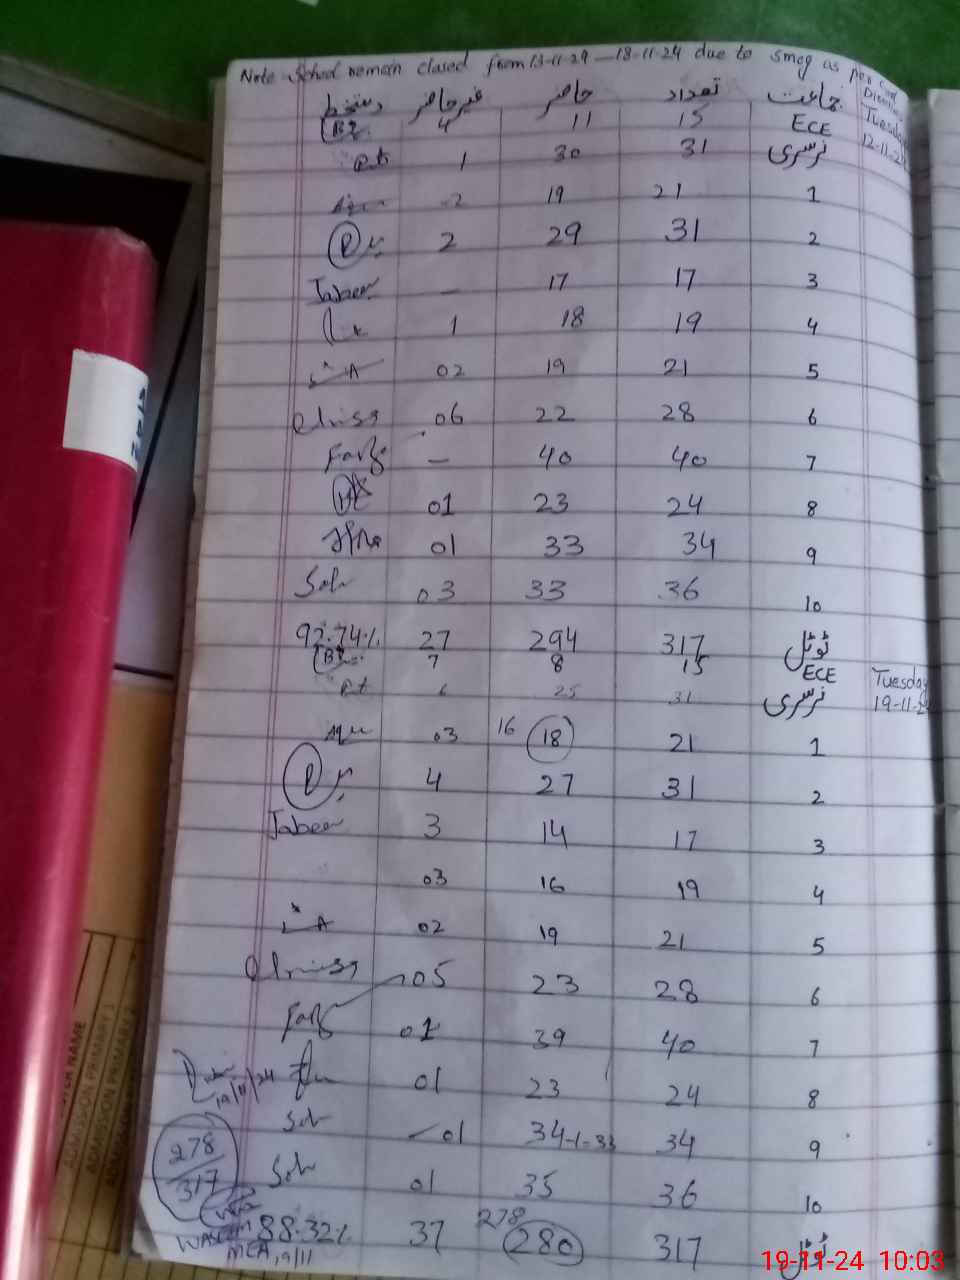 Note School remain closed from 13-11-24 — 18-11-24 due to smog as per
جماعت تعداد حاضر غیر حاضر دستخط
Tuesday
12-11-24
ECE 15 11 4
نرسری 31 30 1
1 21 19 2
2 31 29 2
3 17 17 — Jabeen
4 19 18 1
5 21 19 02
6 28 22 06
7 40 40 —
8 24 23 01
9 34 33 01
10 36 33 03
ٹوٹل 317 294 27 92.74%
Tuesday
19-11-24
ECE 15 8 7
نرسری 31 25 6
1 21 18 16 03
2 31 27 4
3 17 14 3 Jabeen
4 19 16 03
5 21 19 02
6 28 23 05
7 40 39 01
8 24 23 01
19/11/24
9 34 34-1=33 01
10 36 35 01
278
317
ٹوٹل 317 280 278 37 88.32%
MEA 19/11
ADMISSION PRIMARY
ADMISSION PRIMARY
19-11-24 10:03